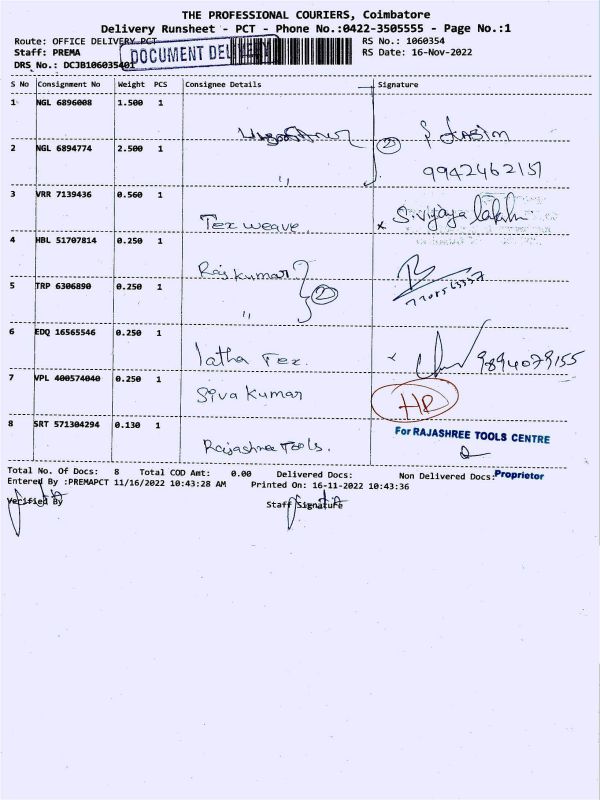 THE PROFESSIONAL COURIERS, Coimbatore
Delivery Runsheet - PCT - Phone No.:0422-3505555 - Page No.:1
Route: OFFICE DELIVERY PCT
RS No.: 1060354
Staff: PREMA
DOCUMENT DELIVERY
RS Date: 16-Nov-2022
DRS No.: DCJB106035401
S No Consignment No Weight PCS Consignee Details Signature
1 NGL 6896008 1.500 1
2
2 NGL 6894774 2.500 1
9942462151
3 VRR 7139436 0.560 1
Tex weave. x S. Vijaya lakshmi
4 HBL 51707814 0.250 1
Raj kumar
5 TRP 6306890 0.250 1
2
6 EDQ 16565546 0.250 1
latha Tex. 9894079155
7 VPL 400574040 0.250 1
Siva Kumar HP
8 SRT 571304294 0.130 1
For RAJASHREE TOOLS CENTRE
Rajashree Tools.
Proprietor
Total No. Of Docs: 8 Total COD Amt: 0.00 Delivered Docs: Non Delivered Docs:
Entered By :PREMAPCT 11/16/2022 10:43:28 AM Printed On: 16-11-2022 10:43:36
Verified By Staff Signature